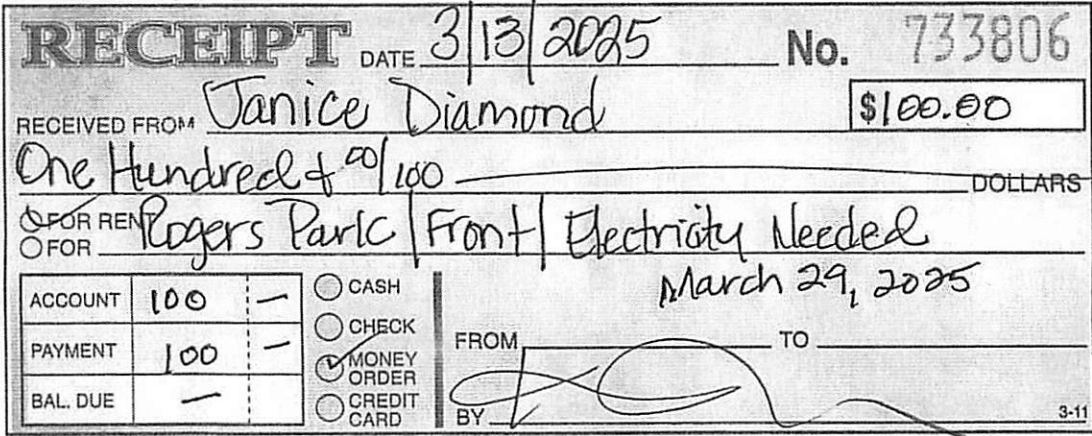 RECEIPT DATE 3/13/2025 No. 733806
RECEIVED FROM Janice Diamond $100.00
One Hundred & 00/100 DOLLARS
FOR RENT
FOR Rogers Park | Front | Electricity Needed
March 29, 2025
ACCOUNT 100 —
PAYMENT 100 —
BAL. DUE —
CASH
CHECK
MONEY ORDER
CREDIT CARD
FROM TO
BY
3-11